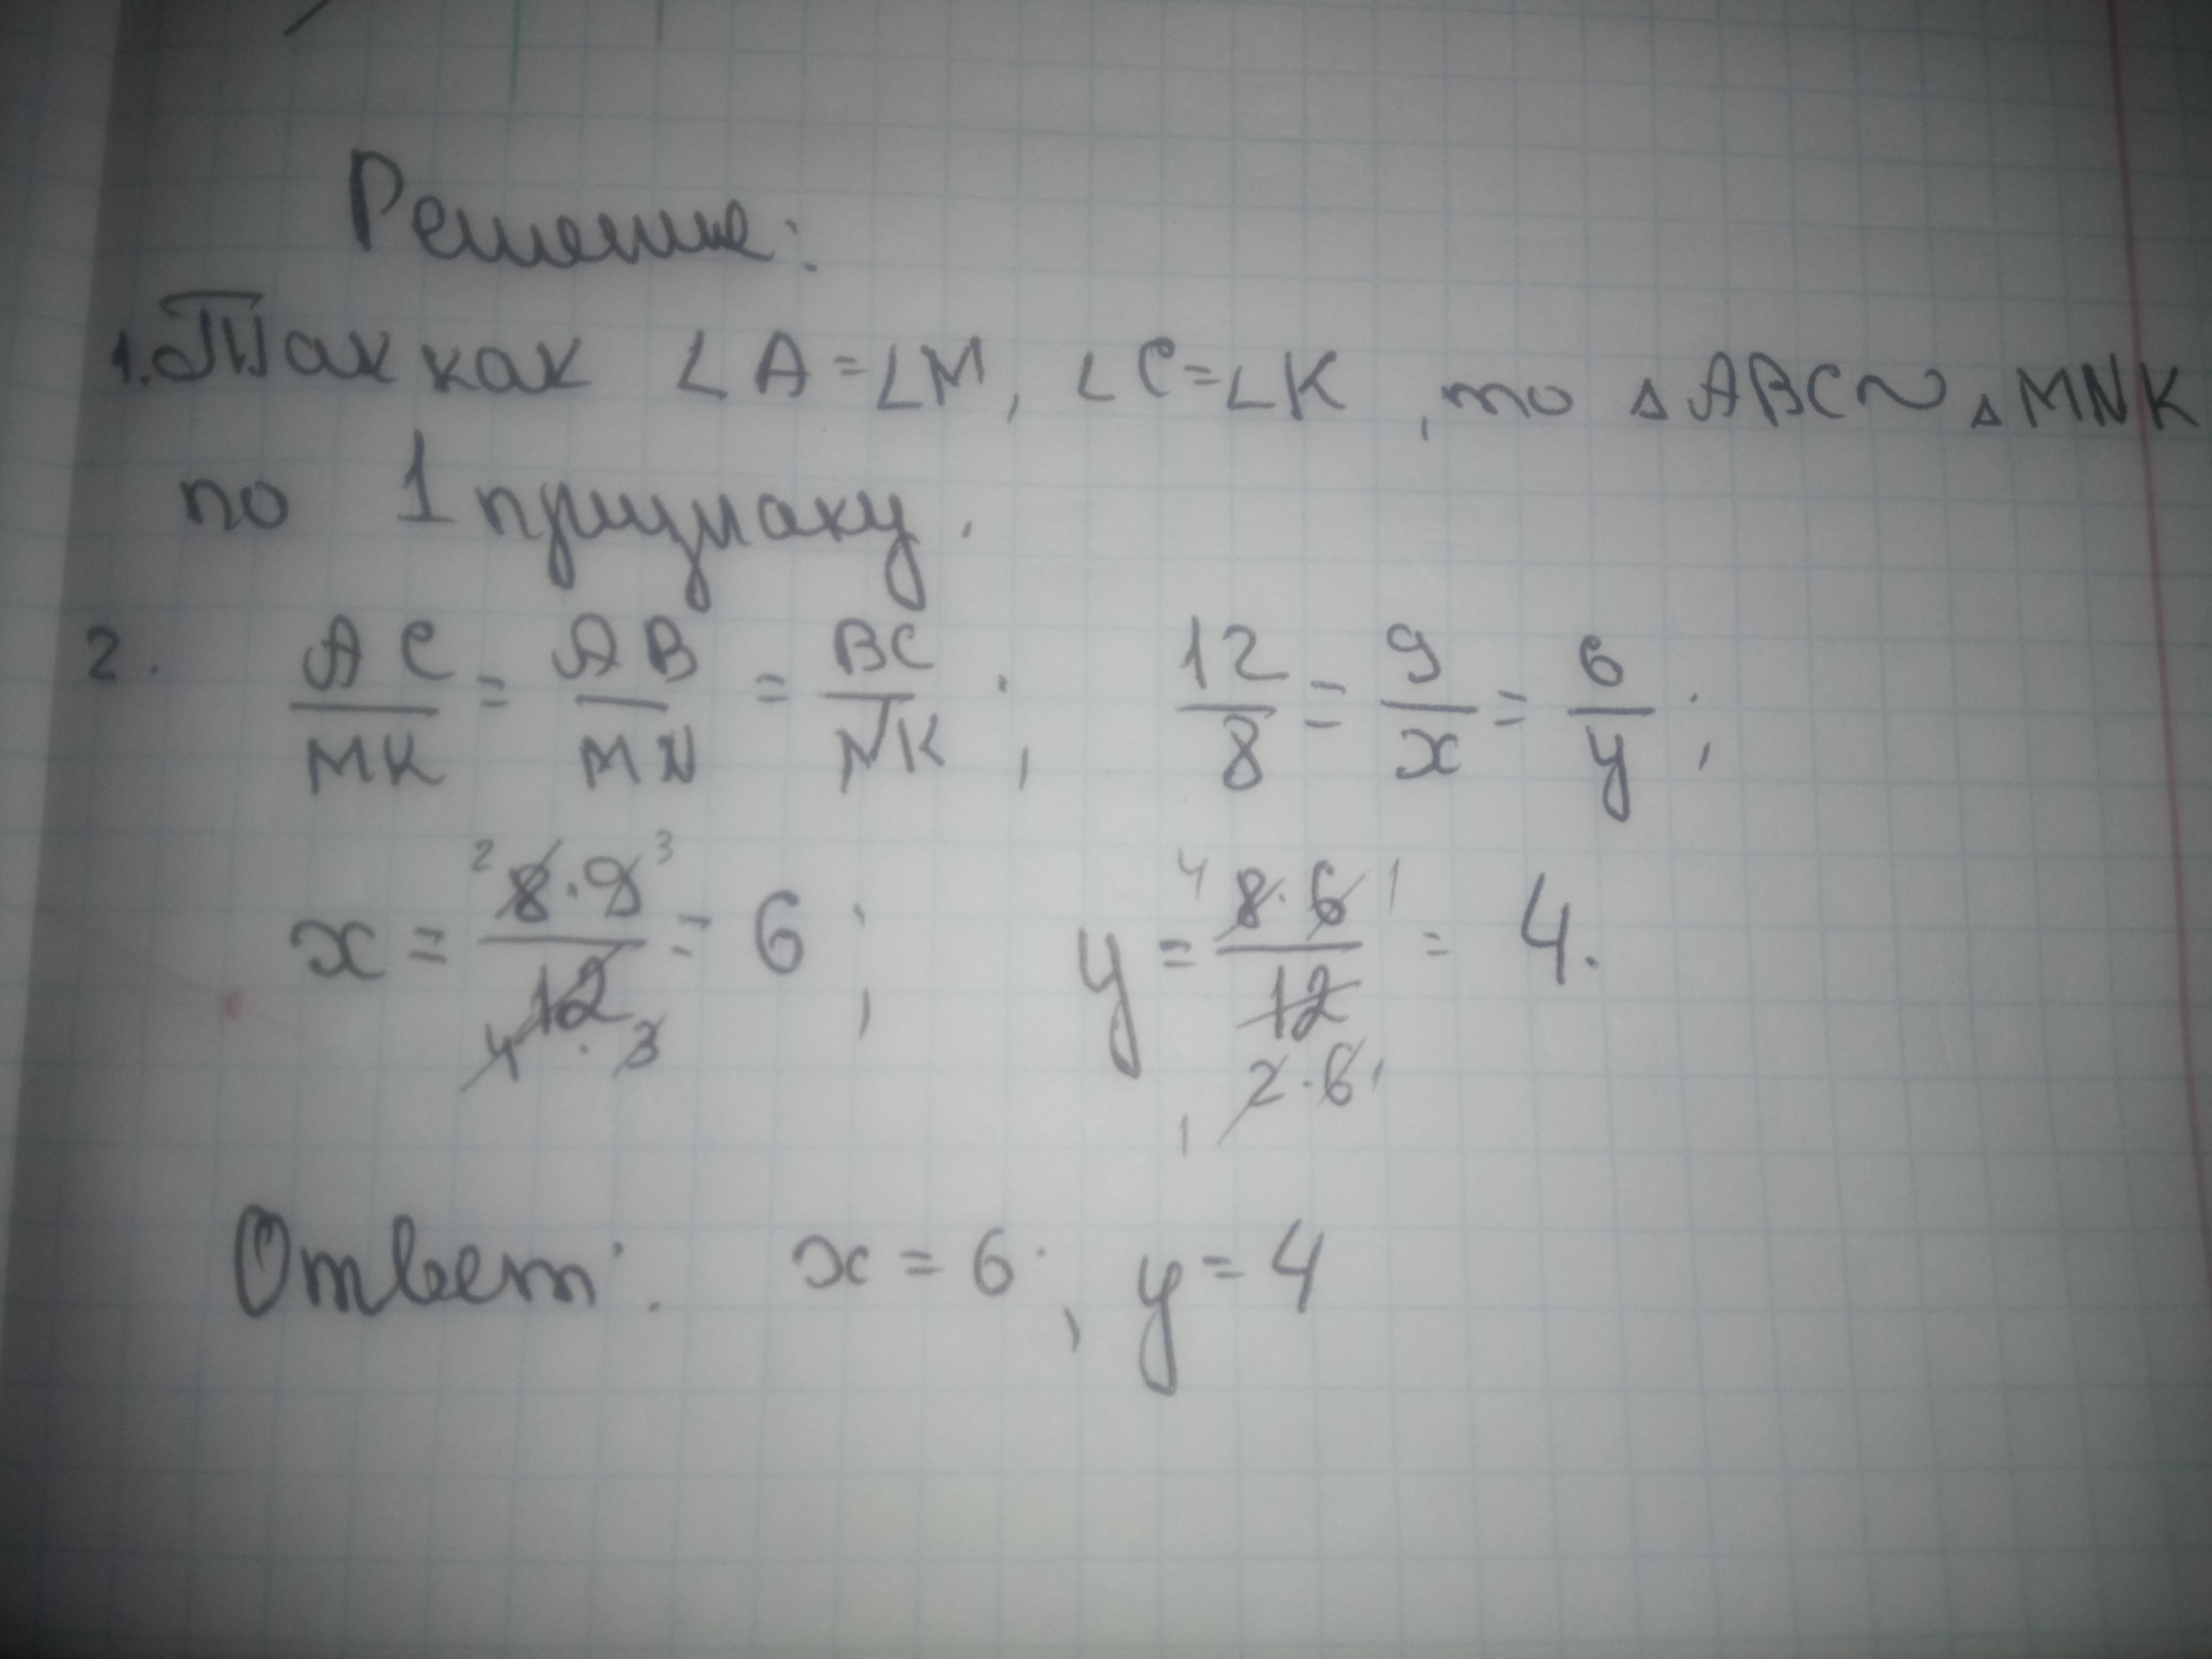 Решение:
1. Так как ∠A=∠M, ∠C=∠K, то △ABC~△MNK
по 1 признаку.
2. AC/MK = AB/MN = BC/NK; 12/8 = 9/x = 6/y;
x = 8·9/12 = 6; y = 8·6/12 = 4.
2 3 4·3 4 1 2·6 1 1
Ответ: x=6; y=4